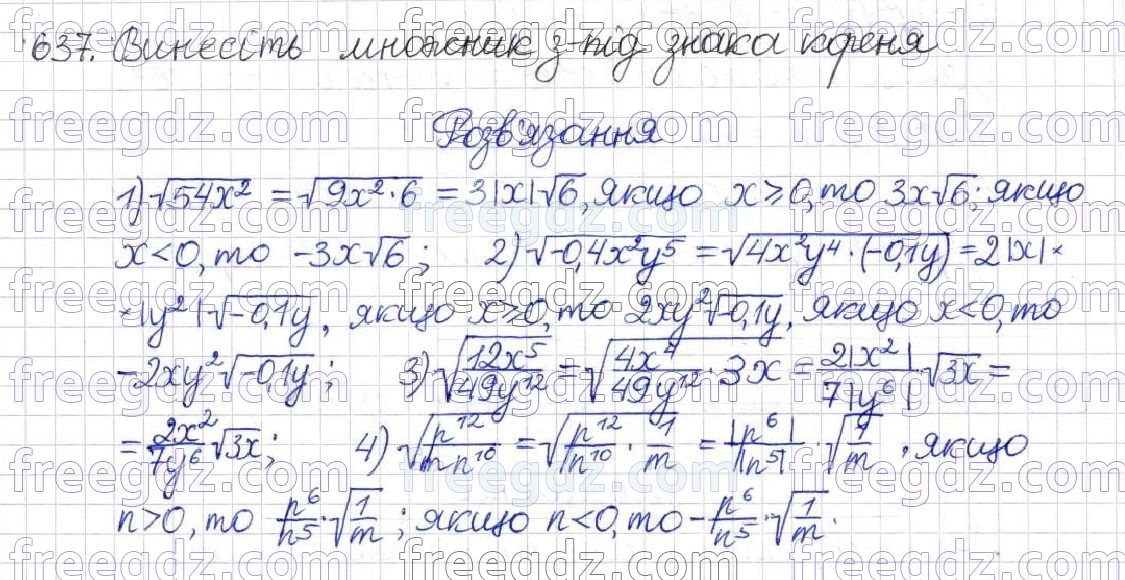 637. Винесіть множник з-під знака кореня
Розв'язання
1) √54x² = √9x²·6 = 3|x|√6, якщо x ≥ 0, то 3x√6; якщо
x < 0, то -3x√6; 2) √-0,4x²y⁵ = √4x²y⁴·(-0,1y) = 2|x|×
×|y²|√-0,1y, якщо x ≥ 0, то 2xy²√-0,1y, якщо x < 0, то
-2xy²√-0,1y; 3) √12x⁵/49y¹² = √4x⁴/49y¹²·3x = 2|x²|/7|y⁶|·√3x =
= 2x²/7y⁶ √3x; 4) √n¹²/mn¹⁰ = √n¹²/n¹⁰·1/m = |n⁶|/|n⁵|·√1/m, якщо
n > 0, то n⁶/n⁵·√1/m; якщо n < 0, то -n⁶/n⁵·√1/m.